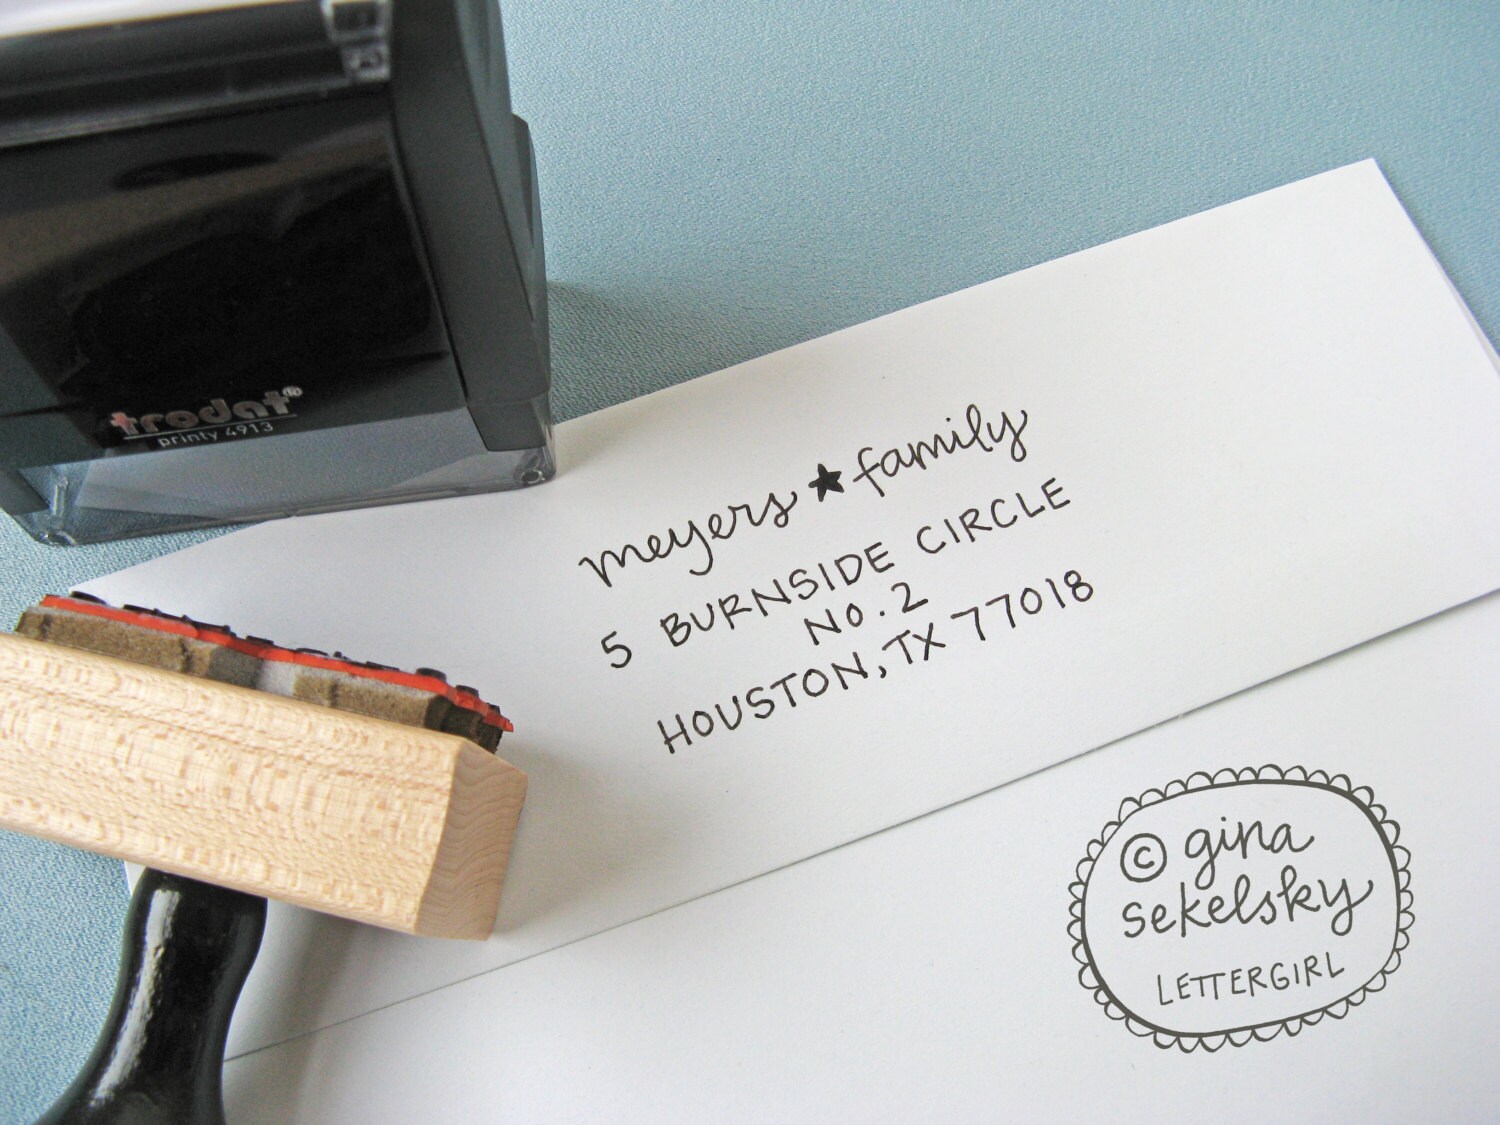 trodat®
printy 4913
meyers ★ family
5 BURNSIDE CIRCLE
NO. 2
HOUSTON, TX 77018
© gina
sekelsky
LETTERGIRL